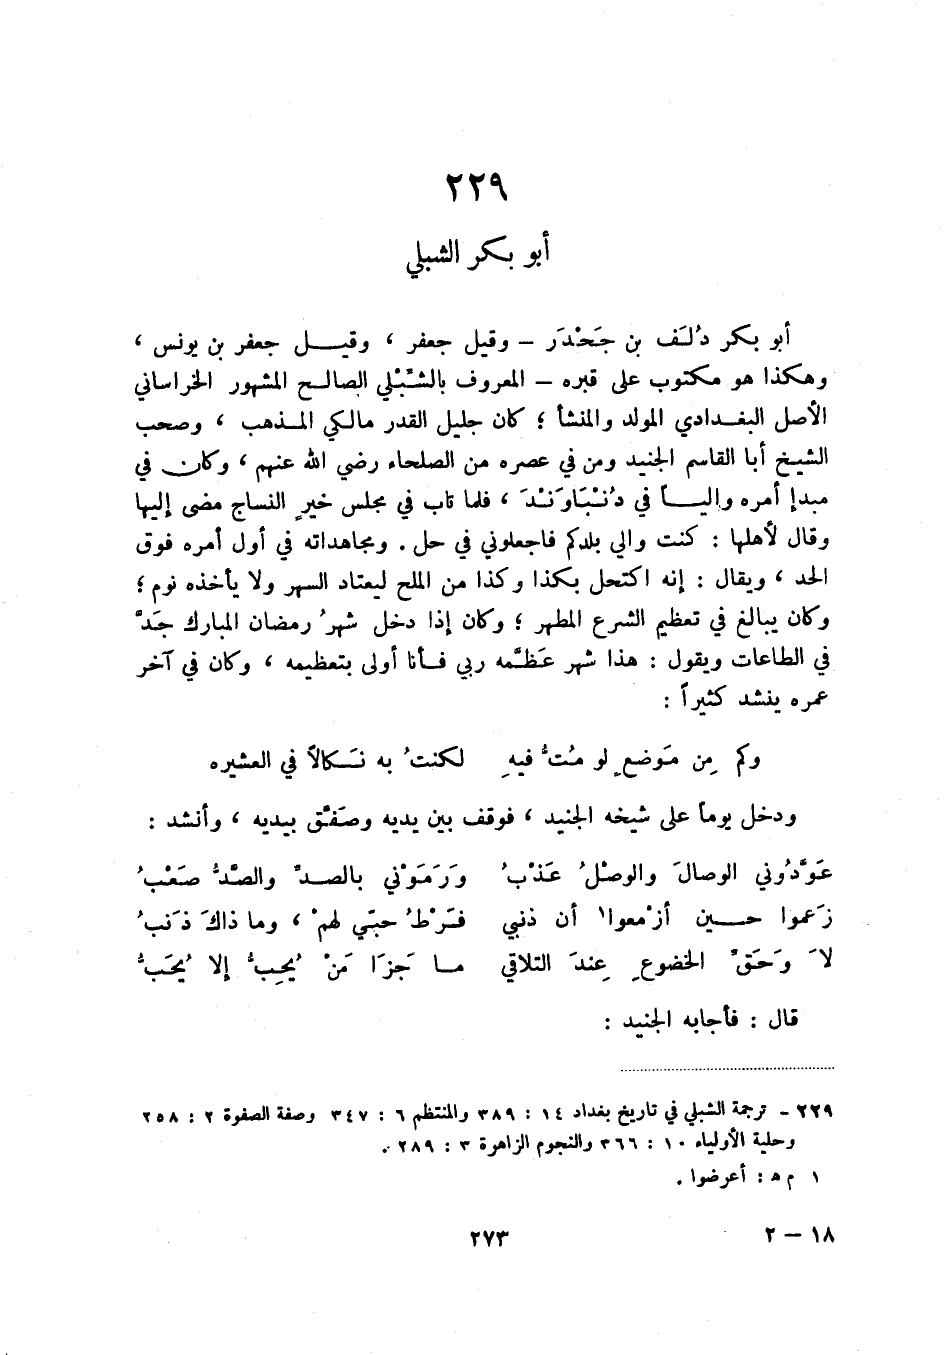 ٢٢٩
أبو بكر الشبلي
أبو بكر دُلَف بن جَحْدَر – وقيل جعفر ، وقيـل جعفر بن يونس ،
وهكذا هو مكتوب على قبره – المعروف بالشِّبْلي الصالح المشهور الخراساني
الأصل البغدادي المولد والمنشأ ؛ كان جليل القدر مالكي المذهب ، وصحب
الشيخ أبا القاسم الجنيد ومن في عصره من الصلحاء رضي الله عنهم ، وكان في
مبدإ أمره واليـاً في دُنْبَاوَنْدَ ، فلما تاب في مجلس خيرٍ النساج مضى إليها
وقال لأهلها : كنت والي بلدكم فاجعلوني في حل . ومجاهداته في أول أمره فوق
الحد ، ويقال : إنه اكتحل بكذا وكذا من الملح ليعتاد السهر ولا يأخذه نوم ؛
وكان يبالغ في تعظيم الشرع المطهر ؛ وكان إذا دخل شهرُ رمضان المبارك جَدَّ
في الطاعات ويقول : هذا شهر عَظَّمه ربي فـأنا أولى بتعظيمه ، وكان في آخر
عمره ينشد كثيراً :
وكم مِن مَوضعٍ لو مُتُّ فيهِ لكنتُ به نَـكالاً في العشيره
ودخل يوماً على شيخه الجنيد ، فوقف بين يديه وصَفَّق بيديه ، وأنشد :
عَوَّدُوني الوصالَ والوصْلُ عَذْبُ وَرَمَوْني بالصدِّ والصَّدُّ صَعْبُ
زَعموا حـين أزْمعوا١ أن ذنبي فَرْطُ حبّي لهمْ ، وما ذاكَ ذَنبُ
لاَ وَحَقِّ الخضوعِ عِندَ التلاقي مـا جَزَا مَنْ يُحِبُّ إلا يُحَبُّ
قال : فأجابه الجنيد :
٢٢٩ - ترجمة الشبلي في تاريخ بغداد ١٤ : ٣٨٩ والمنتظم ٦ : ٣٤٧ وصفة الصفوة ٢ : ٢٥٨
وحلية الأولياء ١٠ : ٣٦٦ والنجوم الزاهرة ٣ : ٢٨٩ .
١ م ه : أعرضوا .
١٨ – ٢
٢٧٣